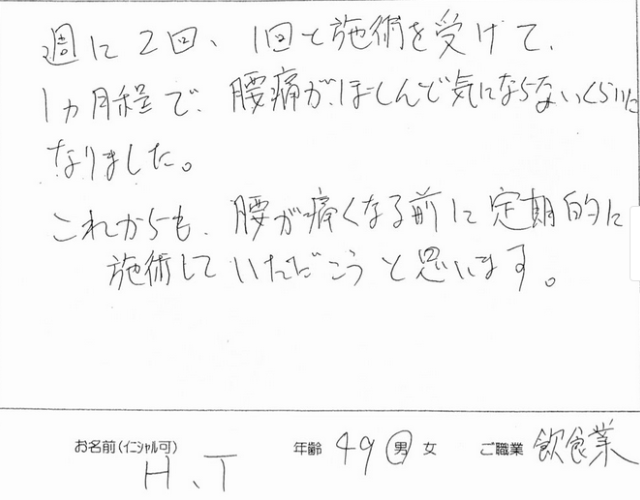 週に2回、1回と施術を受けて、
1ヵ月程で、腰痛がほとんど気にならないくらいに
なりました。
これからも、腰が痛くなる前に定期的に
施術していただこうと思います。
お名前(イニシャル可) H、T 年齢 49 男 女 ご職業 飲食業